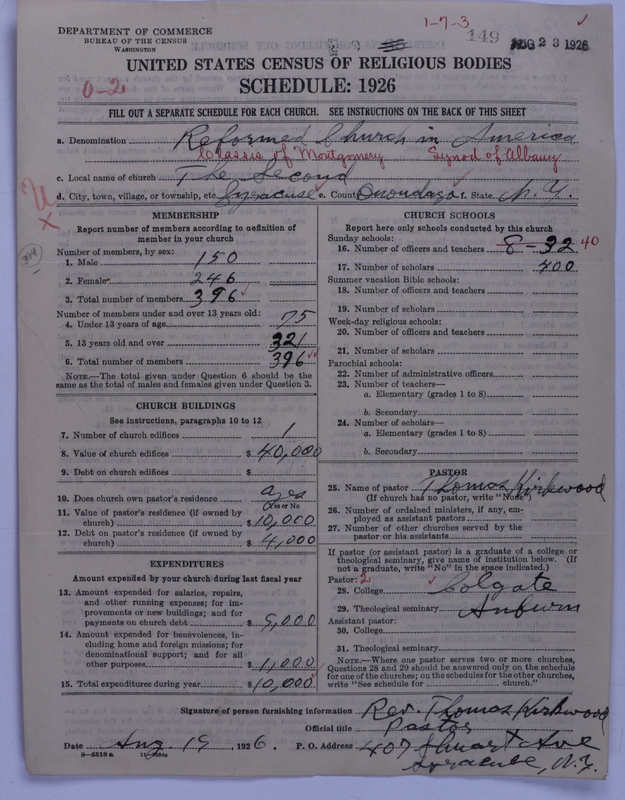 DEPARTMENT OF COMMERCE
BUREAU OF THE CENSUS
WASHINGTON
1-7-3
149
AUG 23 1926
UNITED STATES CENSUS OF RELIGIOUS BODIES
0-2
SCHEDULE: 1926
FILL OUT A SEPARATE SCHEDULE FOR EACH CHURCH. SEE INSTRUCTIONS ON THE BACK OF THIS SHEET
a. Denomination Reformed Church in America
Classis of Montgomery Synod of Albany
c. Local name of church The Second
d. City, town, village, or township, etc. Syracuse e. County Onondaga f. State N.Y.
U
x
MEMBERSHIP
Report number of members according to definition of
member in your church
Number of members, by sex:
1. Male 150
2. Female 246
3. Total number of members 396
Number of members under and over 13 years old:
4. Under 13 years of age 75
5. 13 years old and over 321
6. Total number of members 396
NOTE.—The total given under Question 6 should be the
same as the total of males and females given under Question 3.
CHURCH BUILDINGS
See instructions, paragraphs 10 to 12
7. Number of church edifices 1
8. Value of church edifices $ 40,000
9. Debt on church edifices $
10. Does church own pastor's residence yes
Yes or No
11. Value of pastor's residence (if owned by
church) $ 10,000
12. Debt on pastor's residence (if owned by
church) $ 4,000
EXPENDITURES
Amount expended by your church during last fiscal year
13. Amount expended for salaries, repairs,
and other running expenses; for im-
provements or new buildings; and for
payments on church debt $ 9,000
14. Amount expended for benevolences, in-
cluding home and foreign missions; for
denominational support; and for all
other purposes $ 1,000
15. Total expenditures during year $ 10,000
CHURCH SCHOOLS
Report here only schools conducted by this church
Sunday schools:
16. Number of officers and teachers 8-32 40
17. Number of scholars 400
Summer vacation Bible schools:
18. Number of officers and teachers
19. Number of scholars
Week-day religious schools:
20. Number of officers and teachers
21. Number of scholars
Parochial schools:
22. Number of administrative officers
23. Number of teachers—
a. Elementary (grades 1 to 8)
b. Secondary
24. Number of scholars—
a. Elementary (grades 1 to 8)
b. Secondary
PASTOR
25. Name of pastor Thomas Kirkwood
(If church has no pastor, write "None")
26. Number of ordained ministers, if any, em-
ployed as assistant pastors
27. Number of other churches served by the
pastor or his assistants
If pastor (or assistant pastor) is a graduate of a college or
theological seminary, give name of institution below. (If
not a graduate, write "No" in the space indicated.)
Pastor: 2
28. College Colgate
29. Theological seminary Auburn
Assistant pastor:
30. College
31. Theological seminary
NOTE.—Where one pastor serves two or more churches,
Questions 28 and 29 should be answered only on the schedule
for one of the churches; on the schedules for the other churches,
write "See schedule for church."
Signature of person furnishing information Rev. Thomas Kirkwood
Official title Pastor
Date Aug 19, 1926. P. O. Address 407 Stuart Ave
8-5518a Syracuse, N.Y.